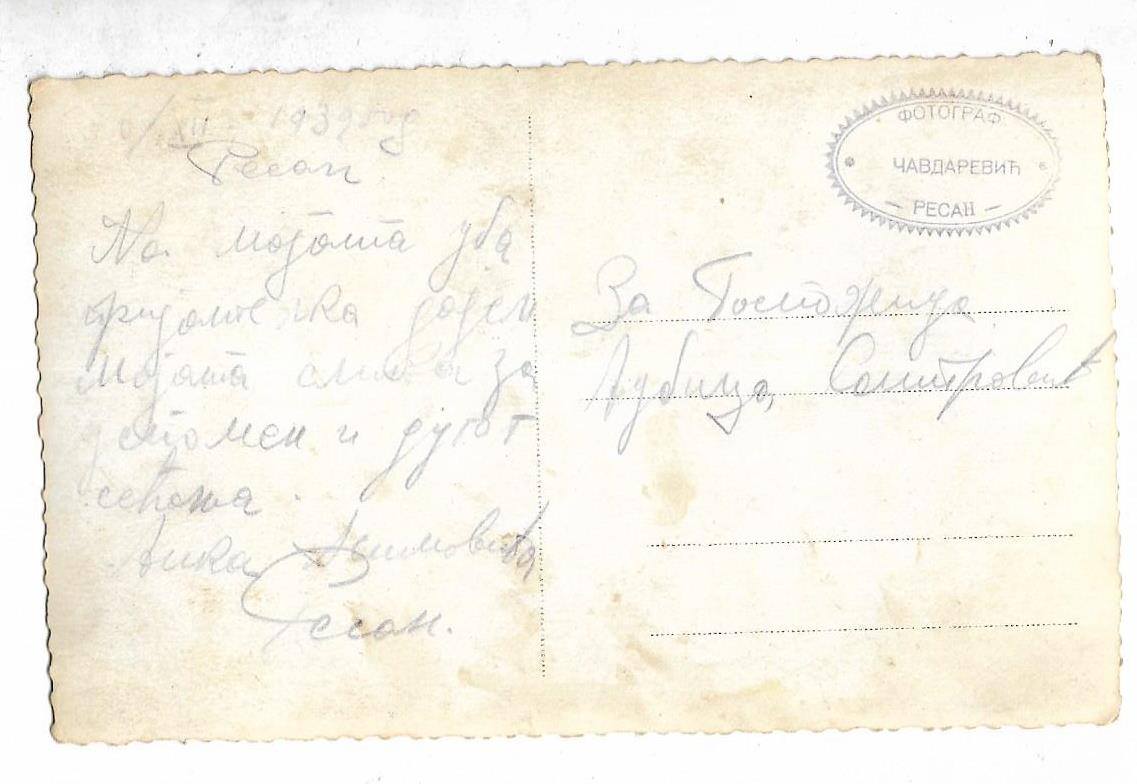 /XII. 1939 год
Ресан.
На мојата уба
пријателка давам
мојата слика за
успомен и дугот
сећања.
Анка Азимовића
Ресан.
ФОТОГРАФ
ЧАВДАРЕВИЋ
— РЕСАН —
За Госпоѓица
Љубица,